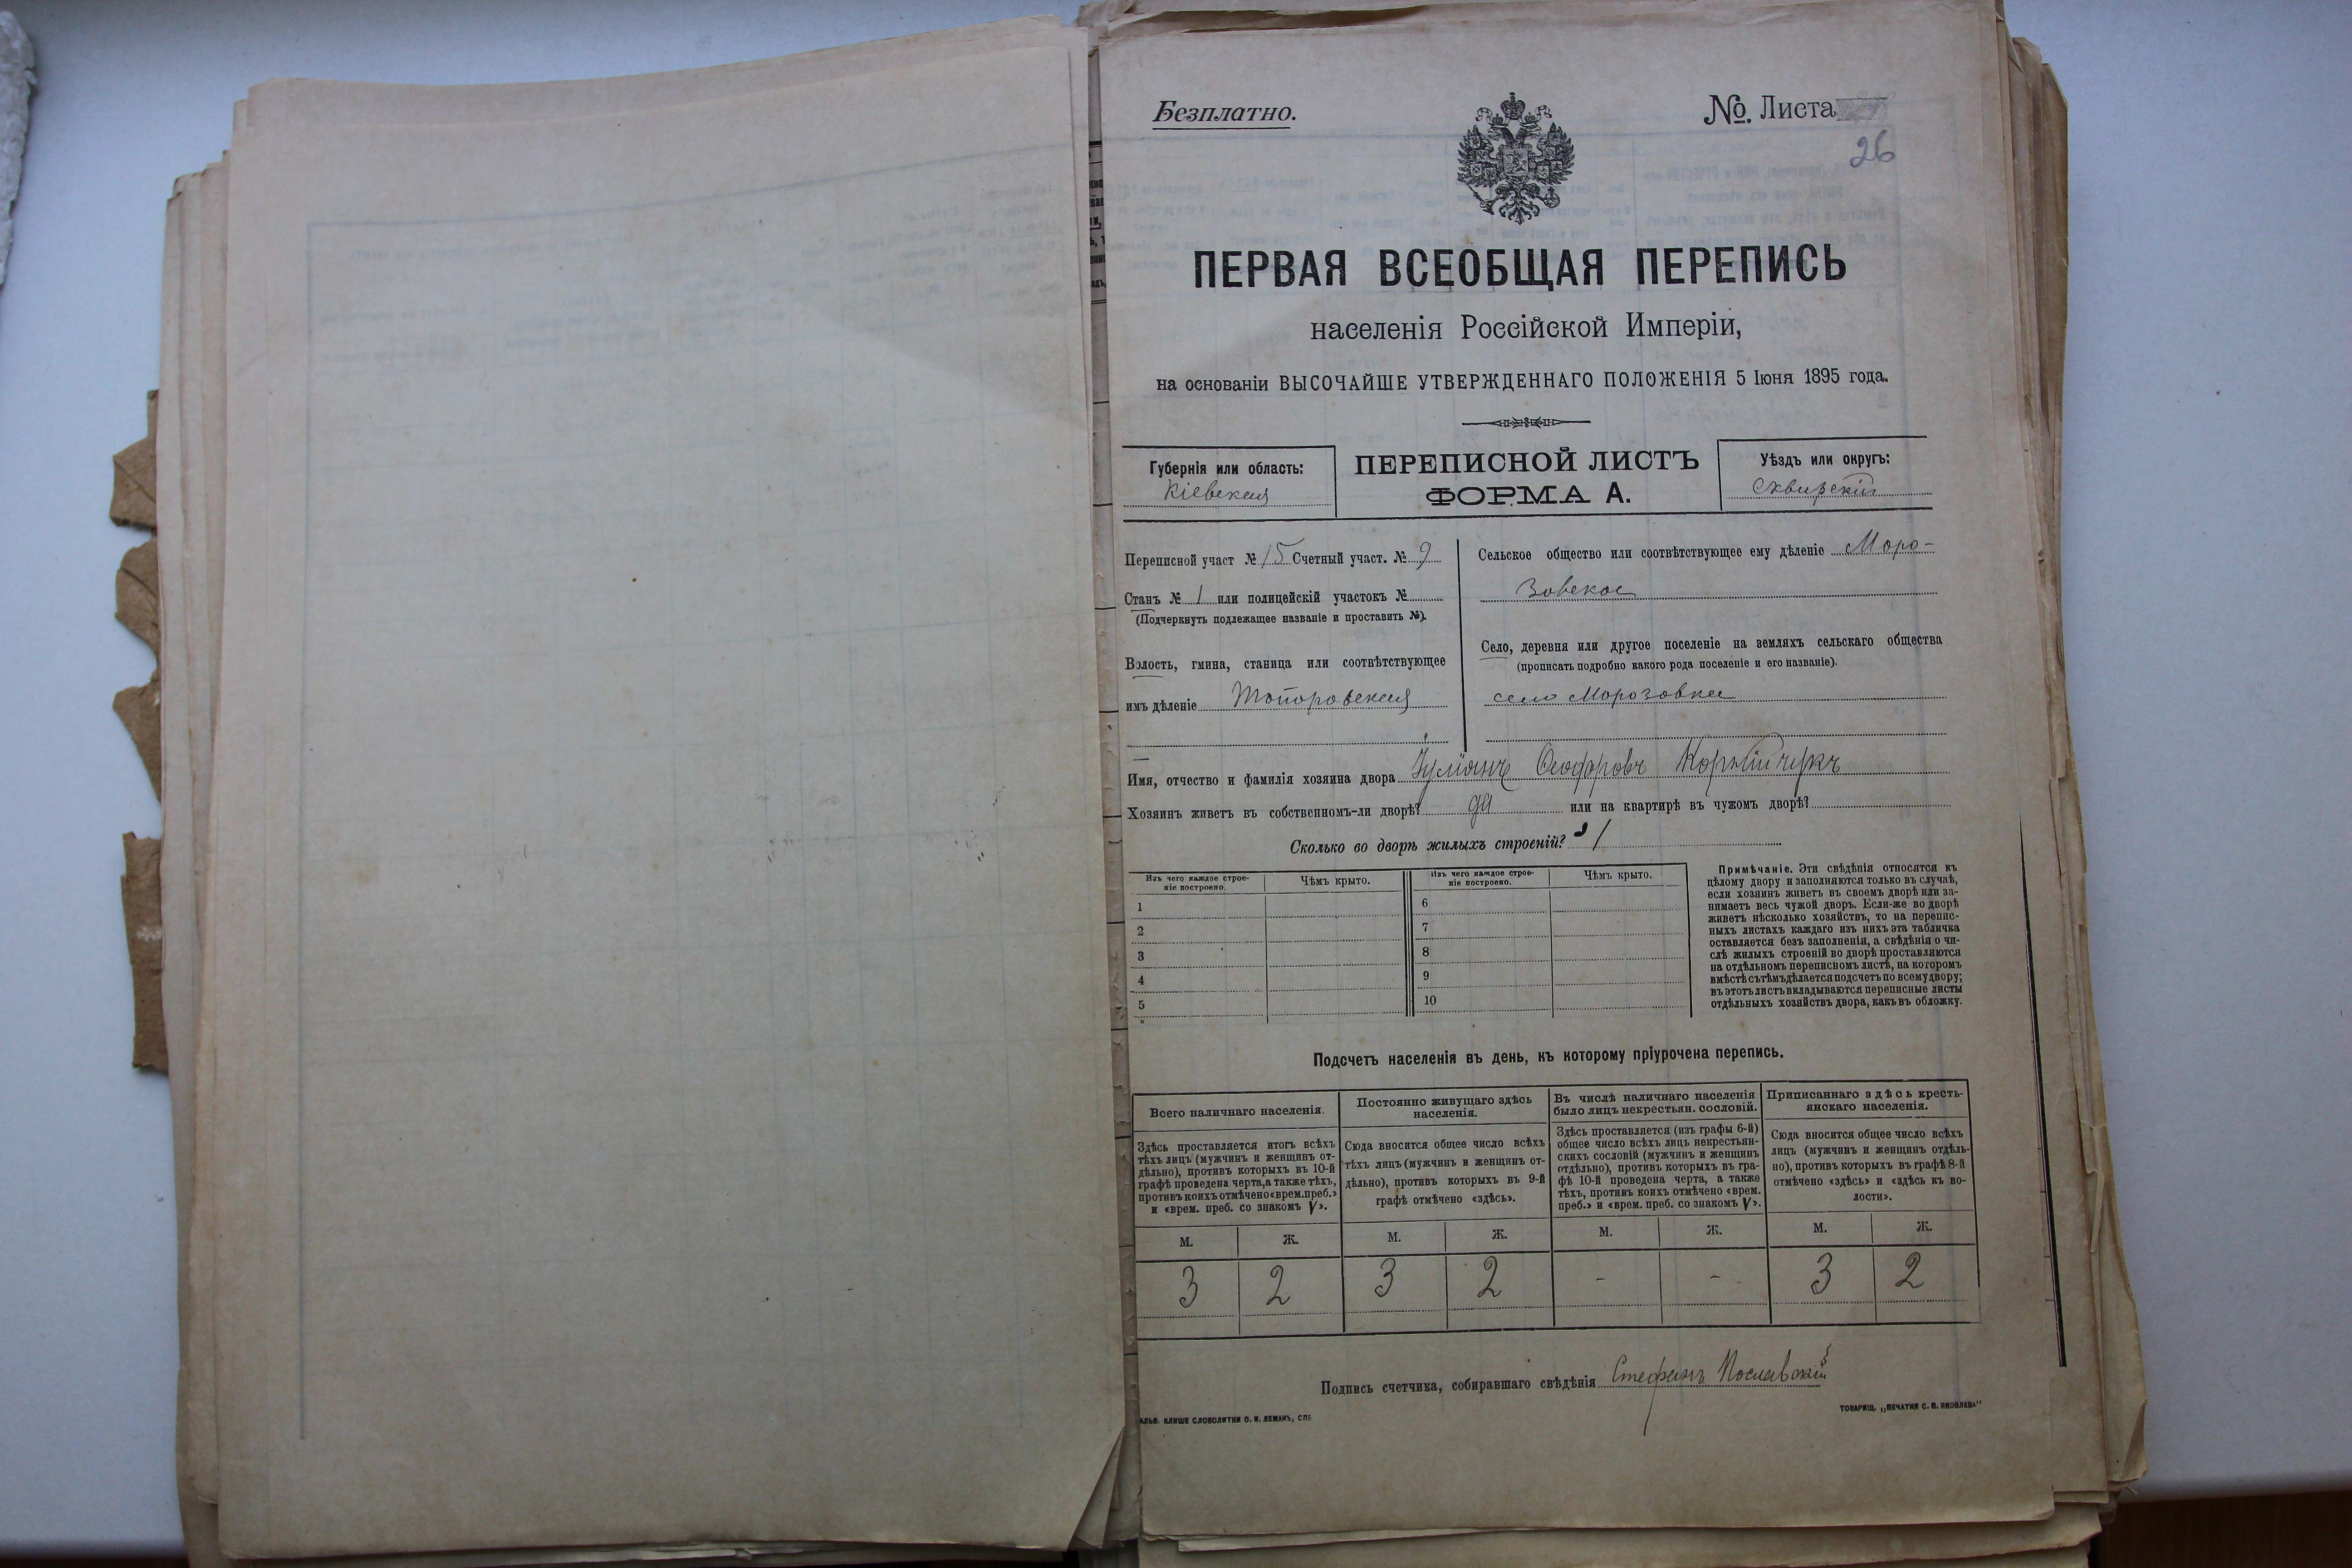 Безплатно.
№ Листа
26
ПЕРВАЯ ВСЕОБЩАЯ ПЕРЕПИСЬ
населенія Россійской Имперіи,
на основаніи ВЫСОЧАЙШЕ УТВЕРЖДЕННАГО ПОЛОЖЕНІЯ 5 Іюня 1895 года.
Губернія или область:
Кіевская
ПЕРЕПИСНОЙ ЛИСТЪ
ФОРМА А.
Уѣздъ или округъ:
Сквирскій
Переписной участ № 15 Счетный участ. № 9
Станъ № 1 или полицейскій участокъ №
(Подчеркнуть подлежащее названіе и проставить №).
Волость, гмина, станица или соотвѣтствующее
имъ дѣленіе Топоровская
Сельское общество или соотвѣтствующее ему дѣленіе Моро-
зовское
Село, деревня или другое поселеніе на земляхъ сельскаго общества
(прописать подробно какого рода поселеніе и его названіе).
село Морозовка
Имя, отчество и фамилія хозяина двора
Хозяинъ живетъ въ собственномъ-ли дворѣ? да или на квартирѣ въ чужомъ дворѣ?
Сколько во дворѣ жилыхъ строеній? 1
Изъ чего каждое строе-
ніе построено.
Чѣмъ крыто.
Изъ чего каждое строе-
ніе построено.
Чѣмъ крыто.
1
2
3
4
5
6
7
8
9
10
Примѣчаніе. Эти свѣдѣнія относятся къ
цѣлому двору и заполняются только въ случаѣ,
если хозяинъ живетъ въ своемъ дворѣ или за-
нимаетъ весь чужой дворъ. Если-же во дворѣ
живетъ нѣсколько хозяйствъ, то на перепис-
ныхъ листахъ каждаго изъ нихъ эта табличка
оставляется безъ заполненія, а свѣдѣнія о чи-
слѣ жилыхъ строеній во дворѣ проставляются
на отдѣльномъ переписномъ листѣ, на которомъ
вмѣстѣ съ тѣмъ дѣлается подсчетъ по всему двору;
въ этотъ листъ вкладываются переписные листы
отдѣльныхъ хозяйствъ двора, какъ въ обложку.
Подсчетъ населенія въ день, къ которому пріурочена перепись.
Всего наличнаго населенія.
Здѣсь проставляется итогъ всѣхъ
тѣхъ лицъ (мужчинъ и женщинъ от-
дѣльно), противъ которыхъ въ 10-й
графѣ проведена черта, а также тѣхъ,
противъ коихъ отмѣчено «врем. преб.»
и «врем. преб. со знакомъ V».
Постоянно живущаго здѣсь
населенія.
Сюда вносится общее число всѣхъ
тѣхъ лицъ (мужчинъ и женщинъ от-
дѣльно), противъ которыхъ въ 9-й
графѣ отмѣчено «здѣсь».
Въ числѣ наличнаго населенія
было лицъ некрестьян. сословій.
Здѣсь проставляется (изъ графы 6-й)
общее число всѣхъ лицъ некрестьян-
скихъ сословій (мужчинъ и женщинъ
отдѣльно), противъ которыхъ въ гра-
фѣ 10-й проведена черта, а также
тѣхъ, противъ коихъ отмѣчено «врем.
преб.» и «врем. преб. со знакомъ V».
Приписаннаго здѣсь кресть-
янскаго населенія.
Сюда вносится общее число всѣхъ
лицъ (мужчинъ и женщинъ отдѣль-
но), противъ которыхъ въ графѣ 8-й
отмѣчено «здѣсь» и «здѣсь къ во-
лости».
М. Ж. М. Ж. М. Ж. М. Ж.
3 2 3 2 - - 3 2
Подпись счетчика, собиравшаго свѣдѣнія Стефанъ Пославскій
КЛИШЕ СЛОВОЛИТНИ О. И. ЛЕМАНЪ, СПБ
ТОВАРИЩ. „ПЕЧАТНЯ С. П. ЯКОВЛЕВА"